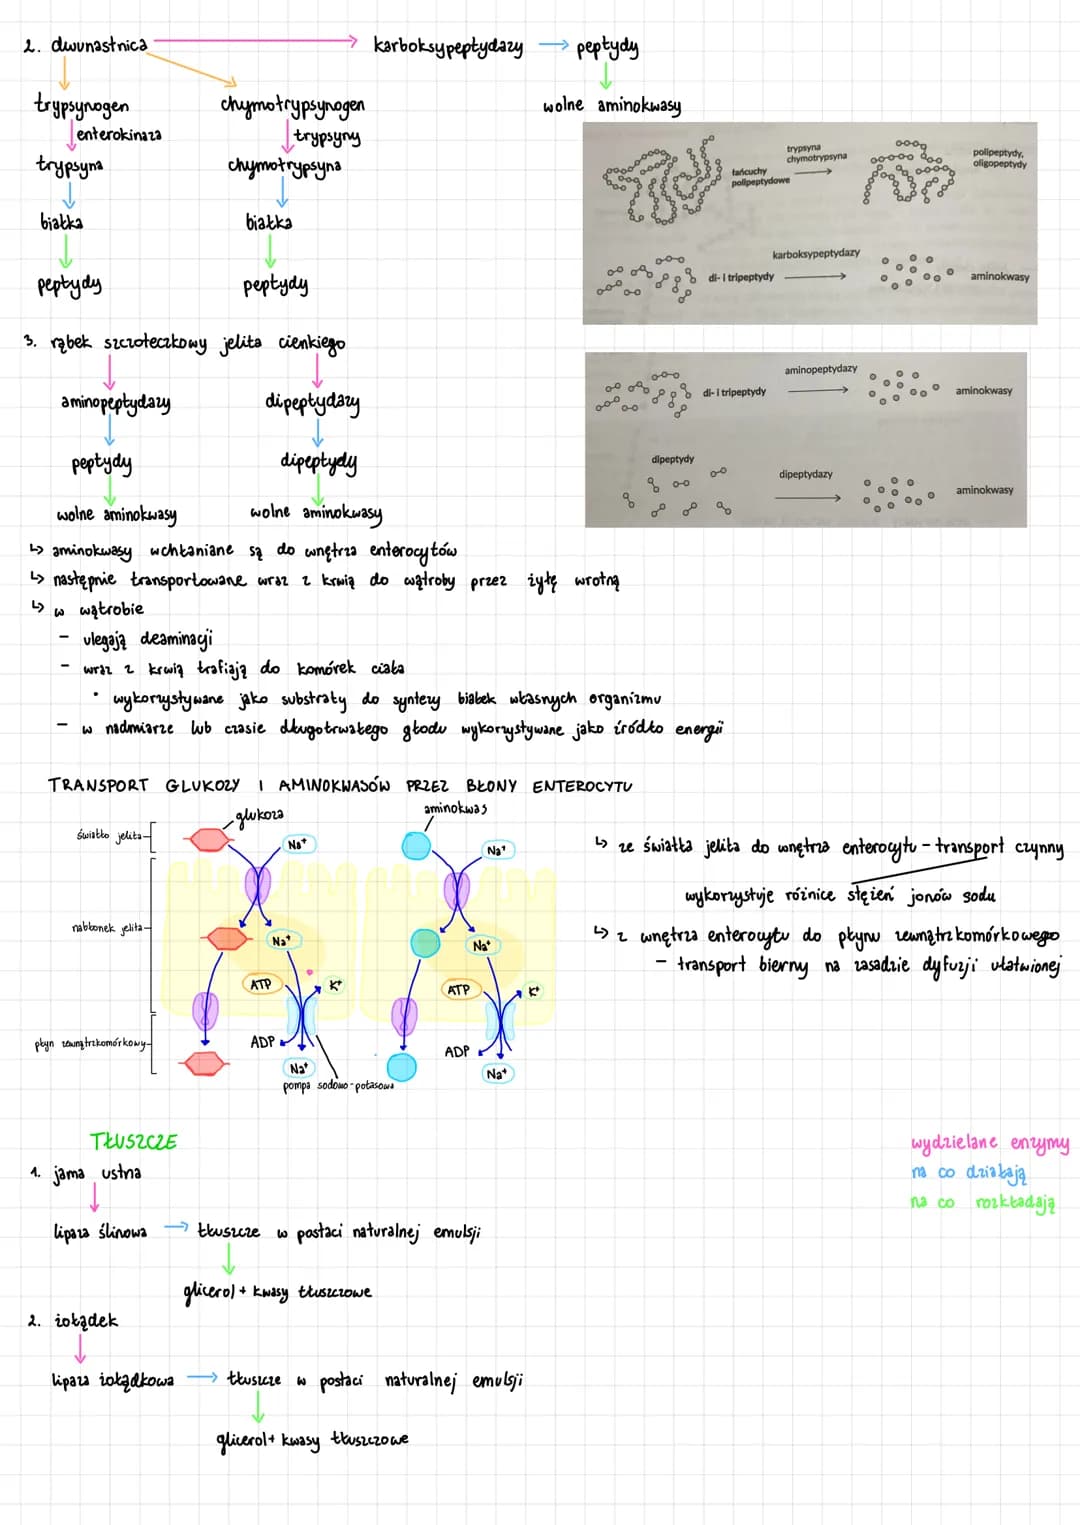 2. dwunastnica → karboksypeptydazy → peptydy
trypsynogen chymotrypsynogen wolne aminokwasy
enterokinaza trypsyny
trypsyna chymotrypsyna
białka białka
peptydy peptydy
trypsyna
chymotrypsyna
łańcuchy
polipeptydowe
polipeptydy,
oligopeptydy
karboksypeptydazy
di- i tripeptydy
aminokwasy
3. rąbek szczoteczkowy jelita cienkiego
aminopeptydazy dipeptydazy
peptydy dipeptydy
wolne aminokwasy wolne aminokwasy
aminopeptydazy
di- i tripeptydy
aminokwasy
dipeptydy
dipeptydazy
aminokwasy
↳ aminokwasy wchłaniane są do wnętrza enterocytów
↳ następnie transportowane wraz z krwią do wątroby przez żyłę wrotną
↳ w wątrobie
- ulegają deaminacji
- wraz z krwią trafiają do komórek ciała
• wykorzystywane jako substraty do syntezy białek własnych organizmu
- w nadmiarze lub czasie długotrwałego głodu wykorzystywane jako źródło energii
TRANSPORT GLUKOZY I AMINOKWASÓW PRZEZ BŁONY ENTEROCYTU
glukoza aminokwas
światło jelita
Na⁺ Na⁺
nabłonek jelita
Na⁺ Na⁺
ATP K⁺ ATP K⁺
płyn zewnątrzkomórkowy
ADP ADP
Na⁺ Na⁺
pompa sodowo-potasowa
↳ ze światła jelita do wnętrza enterocytu - transport czynny
wykorzystuje różnice stężeń jonów sodu
↳ z wnętrza enterocytu do płynu zewnątrzkomórkowego
- transport bierny na zasadzie dyfuzji ułatwionej
TŁUSZCZE
wydzielane enzymy
na co działają
na co rozkładają
1. jama ustna
lipaza ślinowa → tłuszcze w postaci naturalnej emulsji
glicerol + kwasy tłuszczowe
2. żołądek
lipaza żołądkowa → tłuszcze w postaci naturalnej emulsji
glicerol + kwasy tłuszczowe